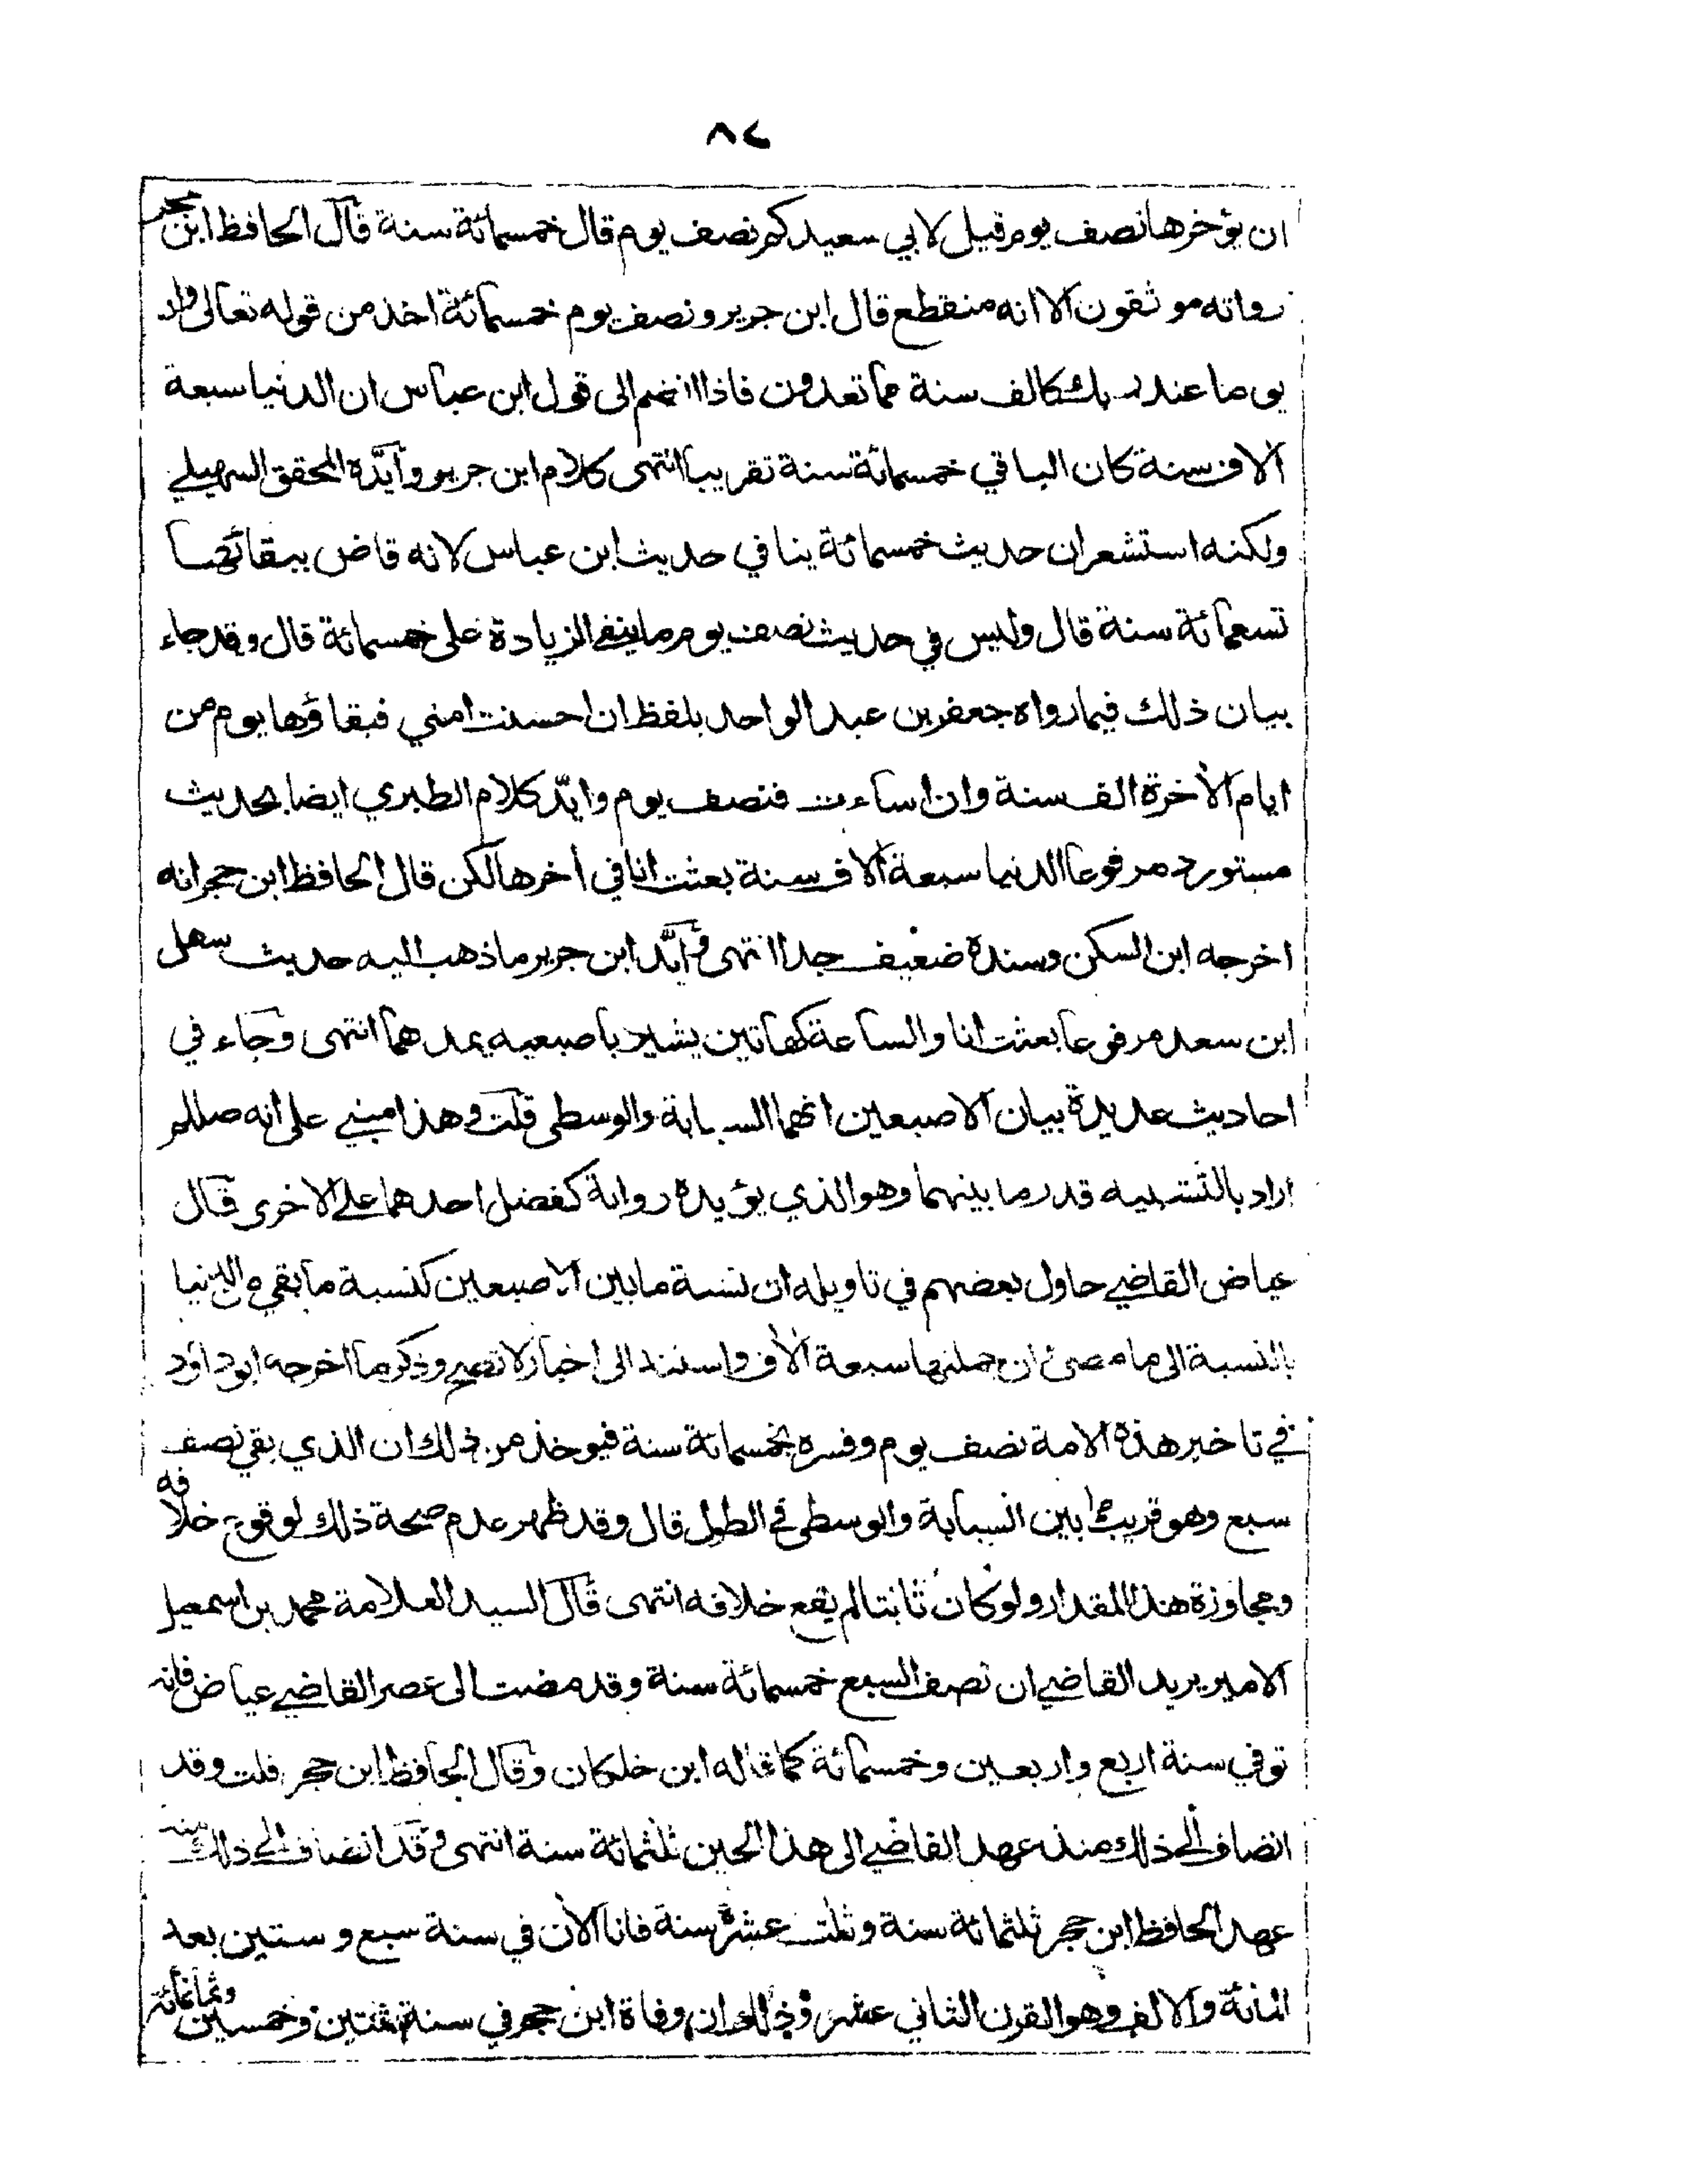 ٨٢
ان يؤخرها نصف يوم قيل لابي سعيد كم نصف يوم قال خمسمائة سنة قال الحافظ ابن حجر
رواته موثقون الا انه منقطع قال ابن جرير ونصف يوم خمسمائة اخذ من قوله تعالى وان
يوما عند ربك كالف سنة مما تعدون فاذا انضم الى قول ابن عباس ان الدنيا سبعة
آلاف سنة كان الباقي خمسمائة سنة تقريبا انتهى كلام ابن جرير وايّده المحقق السهيلي
ولكنه استشعر ان حديث خمسمائة ينافي حديث ابن عباس لانه قاض ببقائها
تسعمائة سنة قال وليس في حديث نصف يوم ما ينفي الزيادة على خمسمائة قال وقد جاء
بيان ذلك فيما رواه جعفر بن عبد الواحد بلفظ ان احسنت امتي فبقاؤها يوم من
ايام الآخرة الف سنة وان اساءت فنصف يوم وايّد كلام الطبري ايضا بحديث
مستورد مرفوعا الدنيا سبعة آلاف سنة بعثت انا في آخرها لكن قال الحافظ ابن حجر انه
اخرجه ابن السكن وسنده ضعيف جدا انتهى وايّد ابن جرير ما ذهب اليه حديث سهل
ابن سعد مرفوعا بعثت انا والساعة كهاتين يشير باصبعيه يمدهما انتهى وجاء في
احاديث عديدة بيان الاصبعين انهما السبابة والوسطى قلت وهذا مبني على انه صللم
اراد بالتشبيه قدر ما بينهما وهو الذي يؤيده رواية كفضل احدهما على الاخرى قال
عياض القاضي حاول بعضهم في تاويله ان نسبة ما بين الاصبعين كنسبة ما بقي من الدنيا
بالنسبة الى ما مضى وان جملتها سبعة آلاف واستند الى اخبار لا تصح وذكر ما اخرجه ابو داؤد
في تاخير هذه الامة نصف يوم وفسره بخمسمائة سنة فيوخذ من ذلك ان الذي بقي نصف
سبع وهو قريب مما بين السبابة والوسطى في الطول قال وقد ظهر عدم صحة ذلك لوقوع خلافه
ومجاوزة هذا المقدار ولو كان ثابتا لم يقع خلافه انتهى قال السيد العلامة محمد بن اسمعيل
الامير يريد القاضي ان نصف السبع خمسمائة سنة وقد مضت الى عصر القاضي عياض فانه
توفي سنة اربع واربعين وخمسمائة كما قاله ابن خلكان وقال الحافظ ابن حجر قلت وقد
انضاف الى ذلك منذ عهد القاضي الى هذا الحين ثلثمائة سنة انتهى وقد انضاف الى ذلك منذ
عهد الحافظ ابن حجر ثلثمائة سنة وثلث عشرة سنة فانا الآن في سنة سبع وستين بعد
المائة والالف وهو القرن الثاني عشر وذلك ان وفاة ابن حجر في سنة ثنتين وخمسين وثمانمائة